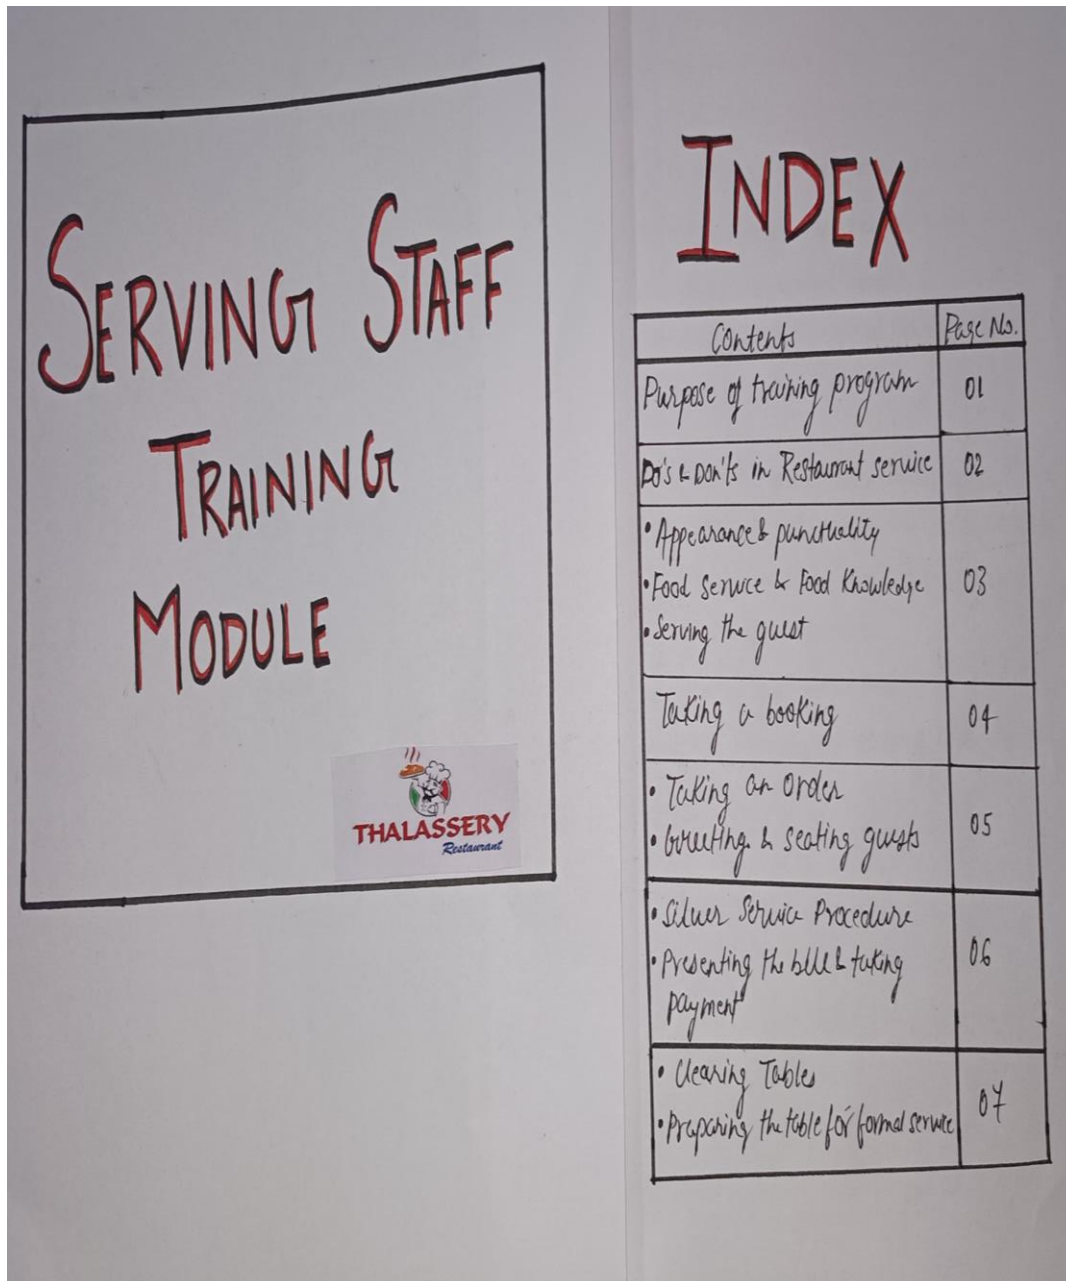 SERVING STAFF
TRAINING
MODULE
THALASSERY
Restaurant
INDEX
Contents
Page No.
Purpose of training program
01
Do's & Don'ts in Restaurant service
02
• Appearance & punctuality
• Food Service & Food Knowledge
03
• Serving the guest
Taking a booking
04
• Taking an order
• Greeting & seating guests
05
• Silver Service Procedure
• Presenting the bill & taking
06
payment
• Clearing Tables
• Preparing the table for formal service
07